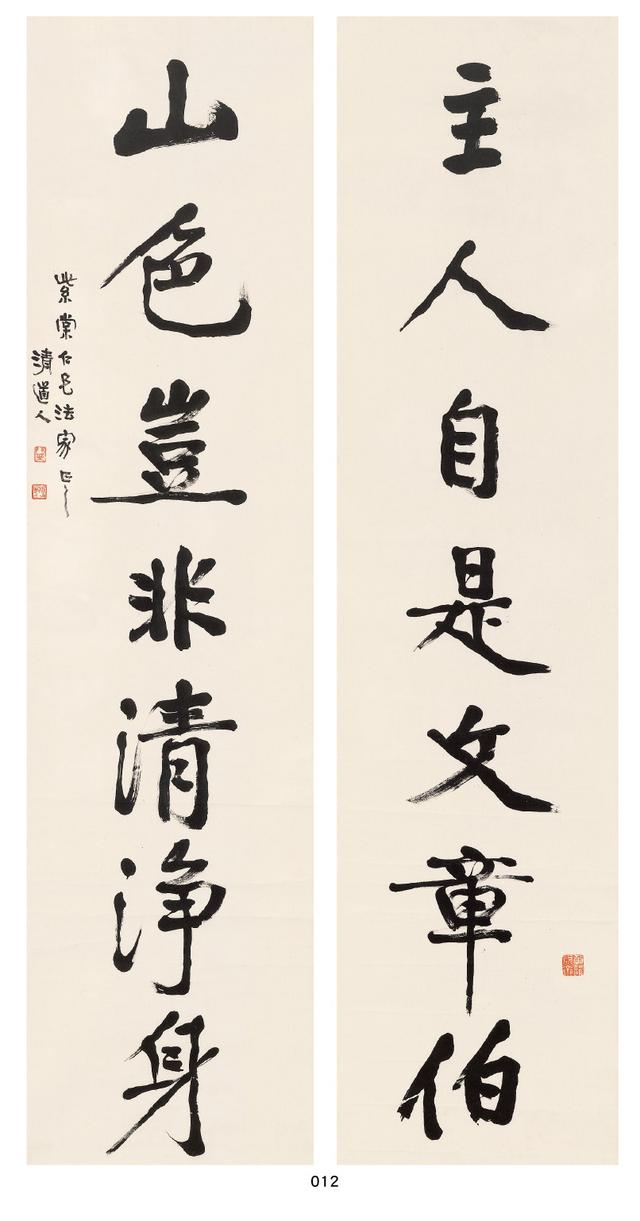 主人自是文章伯
山色豈非清淨身
紫棠仁兄法家正之
清道人
012